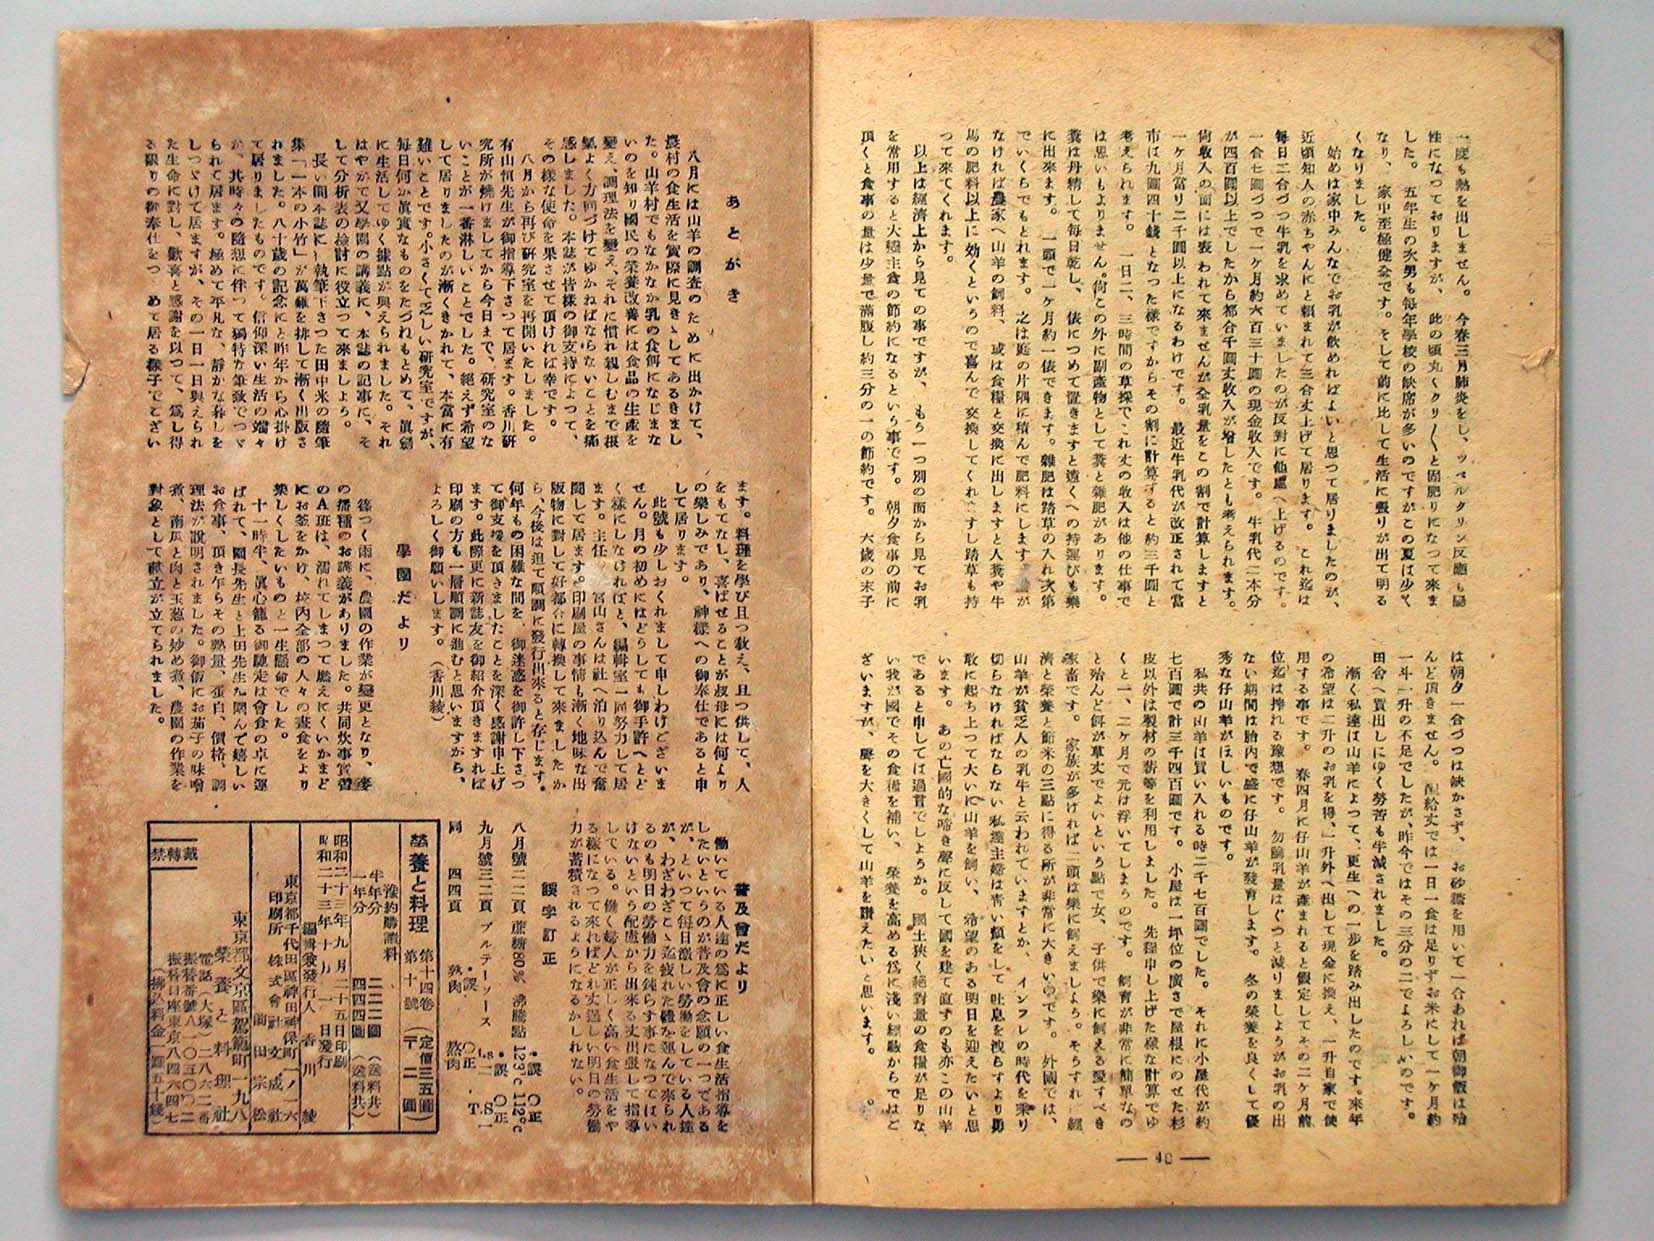 一度も熱を出しません。今春三月肺炎をし、ツベルクリン反應も陽
性になつておりますが、此の頃丸くクリ〳〵と固肥りになつて來ま
した。五年生の次男も毎年學校の缺席が多いのですがこの夏は少く
なり、家中至極健全です。そして前に比して生活に張りが出て明る
くなりました。
始めは家中みんなでお乳が飲めればよいと思つて居りましたのが、
近頃知人の赤ちやんにと頼まれて三合丈上げて居ります。これ迄は
毎日二合づつ牛乳を求めていましたのが反對に他處へ上げるのです。
一合七圓づつで一ケ月約六百三十圓の現金收入です。牛乳代二本分
が四百圓以上でしたから都合千圓丈收入が増したとも考えられます。
尚收入の面には表われて來ませんが全乳量をこの割で計算しますと
一ケ月當り二千圓以上になるわけです。最近牛乳代が改正されて當
市は九圓四十錢となつた樣ですからその割に計算すると約三千圓と
考えられます。一日二、三時間の草採でこれ丈の收入は他の仕事で
は思いもよりません。尚この外に副産物として糞と雜肥があります。
糞は丹精して毎日乾し、俵につめて置きますと遠くへの持運びも樂
に出來ます。一頭で一ケ月約一俵できます。雜肥は踏草の入れ次第
でいくらでもとれます。之は庭の片隅に積んで肥料にしますが
なければ農家へ山羊の飼料、或は食糧と交換に出しますと人糞や牛
馬の肥料以上に効くというので喜んで交換してくれますし踏草も持
つて來てくれます。
以上は經濟上から見ての事ですが、もう一つ別の面から見てお乳
を常用すると大變主食の節約になるという事です。朝夕食事の前に
頂くと食事の量は少量で滿腹し約三分の一の節約です。六歳の末子
は朝夕一合づつは缺かさず、お砂糖を用いて一合あれば朝御飯は殆
んど頂きません。配給丈では一日一食は足りずお米にして一ケ月約
一斗一升の不足でしたが、昨今ではその三分の二でよろしいのです。
田舍へ買出しにゆく勞苦も半減されました。
漸く私達は山羊によつて、更生への一步を踏み出したのです。來年
の希望は二升のお乳を得、一升外へ出して現金に換え、一升自家で使
用する事です。春四月に仔山羊が産まれると假定してその二ケ月前
位迄は搾れる豫想です。勿論乳量はぐつと減りましようがお乳の出
ない期間は胎内で盛に仔山羊が發育します。冬の榮養を良くして優
秀な仔山羊がほしいものです。
私共の山羊は買い入れる時二千七百圓でした。それに小屋代が約
七百圓で計三千四百圓です。小屋は一坪位の廣さで屋根にのせた杉
皮以外は製材の薪等を利用しました。先程申し上げた樣な計算でゆ
くと一、二ケ月で元は浮いてしまうのです。飼育が非常に簡單なの
と殆んど餌が草丈でよいという點で女、子供で樂に飼える愛すべき
家畜です。家族が多ければ二頭は樂に飼えましよう。そうすれば經
濟と榮養と節米の三點に得る所が非常に大きいのです。外國では、
山羊が貧乏人の乳牛と云われていますとか、インフレの時代を乘り
切らなければならない私達主婦は靑い顏をして吐息を洩らすより勇
敢に起ち上つて大いに山羊を飼い、希望のある明日を迎えたいと思
います。あの亡國的な啼き聲に反して國を建て直すのも亦この山羊
であると申しては過言でしようか。國土狹く絕對量の食糧が足りな
い我が國でその食衛を補い、榮養を高める爲に淺い經驗からではご
ざいますが、聲を大きくして山羊を讚えたいと思います。
— 40 —
あとがき
八月には山羊の調査のために出かけて、
農村の食生活を實際に見きゝしてあるきまし
た。山羊村でもなかなか乳の食餌になじまな
いのを知り國民の榮養改善には食品の生産を
變え、調理法を變え、それに慣れ親しむまで根
氣よく方向づけてゆかねばならないことを痛
感しました。本誌が皆樣の御支持によつて、
その樣な使命を果させて頂ければ幸です。
八月から再び研究室を再開いたしました。
有山恒先生が御指導下さつて居ます。香川研
究所が燒けましてから今日まで、研究室のな
いことが一番淋しいことでした。絕えず希望
して居りましたのが漸くきかれて、本當に有
難いことです。小さくて乏しい研究室ですが、
毎日何か眞實なものをたづねもとめて、眞劍
に生活してゆく據點が與えられました。それ
はやがて又學園の講義に、本誌の記事に、そ
して分析表の檢討に役立つて來ましよう。
長い間本誌に執筆下さつた田中米の隨筆
集「一本の小竹」が萬難を排して漸く出版さ
れました。八十歳の記念にと昨年から心掛け
て居りましたものです。信仰深い生活の端々
が、其時々の隨想に伴つて獨特な筆致でつゞ
られて居ます。極めて平凡な、靜かな暮しを
しつゞけて居ますが、その一日一日與えられ
た生命に對し、歡喜と感謝を以つて、爲し得
る限りの御奉仕をつとめて居る樣子でござい
ます。料理を學び且つ敎え、且つ供して、人
をもてなし、喜ばせることが叔母には何より
の樂しみであり、神樣への御奉仕であると申
して居ります。
此號も少しおくれまして申しわけございま
せん。月の初めにはどうしても御手許へとど
く樣にしなければと、編輯室一同努力して居
ます。主任の宮山さんは社へ泊り込んで奮
鬪して居ます。印刷屋の事情も漸く地味な出
版物に對して好都合に轉換して來ましたか
ら、今後は追て順調に發行出來ると存じます。
何年もの困難な間を、御迷惑を御許し下さつ
て御支援を頂きましたことを深く感謝申上げ
ます。此際更に新誌友を御紹介頂きますれば
印刷の方も一層順調に進むと思いますから、
よろしく御願いします。（香川綾）
學園だより
篠つく雨に、農園の作業が變更となり、麥
の播種のお講義がありました。共同炊事當番
のA班は、濡れてしまつて燃えにくいかまど
にお釜をかけ、塾内全部の人々の晝食をより
樂しくしたいものと一生懸命でした。
十一時半、眞心籠る御馳走は會食の卓に運
ばれて、園長先生と上田先生を圍んで嬉しい
お食事、頂き乍らその熱量、蛋白、價格、調
理法が說明されました。御飯にお茄子の味噌
煮、南瓜と肉と玉葱の炒め煮、農園の作業を
對象として献立が立てられました。
普及會だより
働いている人達の爲に正しい食生活指導を
したいというのが普及會の念願の一つである
が、といつて毎日激しい勞働をしている人達
が、わざわざこゝ迄疲れた體を運んで來られ
るのも明日の勞働力を鈍らす事になつてはい
けないという配慮から出來る丈出張して指導
している。働く婦人が正しく高い食生活をや
る樣になつて來ればどれ丈逞しい明日の勞働
力が蓄積されるようになるかしれない。
誤字訂正
・誤 〇正
八月號二二頁 蔗糖80％ 沸騰點 123°C 112°C
・誤 〇正
九月號三二頁 ブルテーソース Ls T.S.
・誤 〇正
同 四四頁 熟肉 蒸肉
榮養と料理 第十四卷 第十號 （定價三五圓）（〒二圓）
豫約購讀料
半年分 二二二圓（送料共）
一年分 四四四圓（送料共）
昭和二十三年九月二十五日印刷
昭和二十三年十月一日發行
編輯兼發行人 香川綾
東京都千代田區神田神保町一ノ一六
印刷所 株式會社 文成社
前田宗松
東京都文京區駕籠町一九八
榮養と料理社
電話（大塚）二八六二番
振替番號八一〇五〇〇二
振替口座東京八四六四七
（拂込料金一躍五十錢）
禁轉載